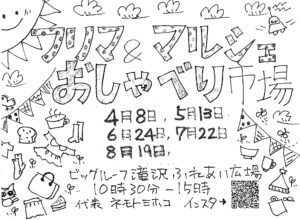 フリマ&マルシェ
おしゃべり市場
4月8日, 5月13日
6月24日, 7月22日
8月19日,
ビッグルーフ滝沢ふれあい広場
10時30分ー15時
代表 ネモトミホコ インスタ→